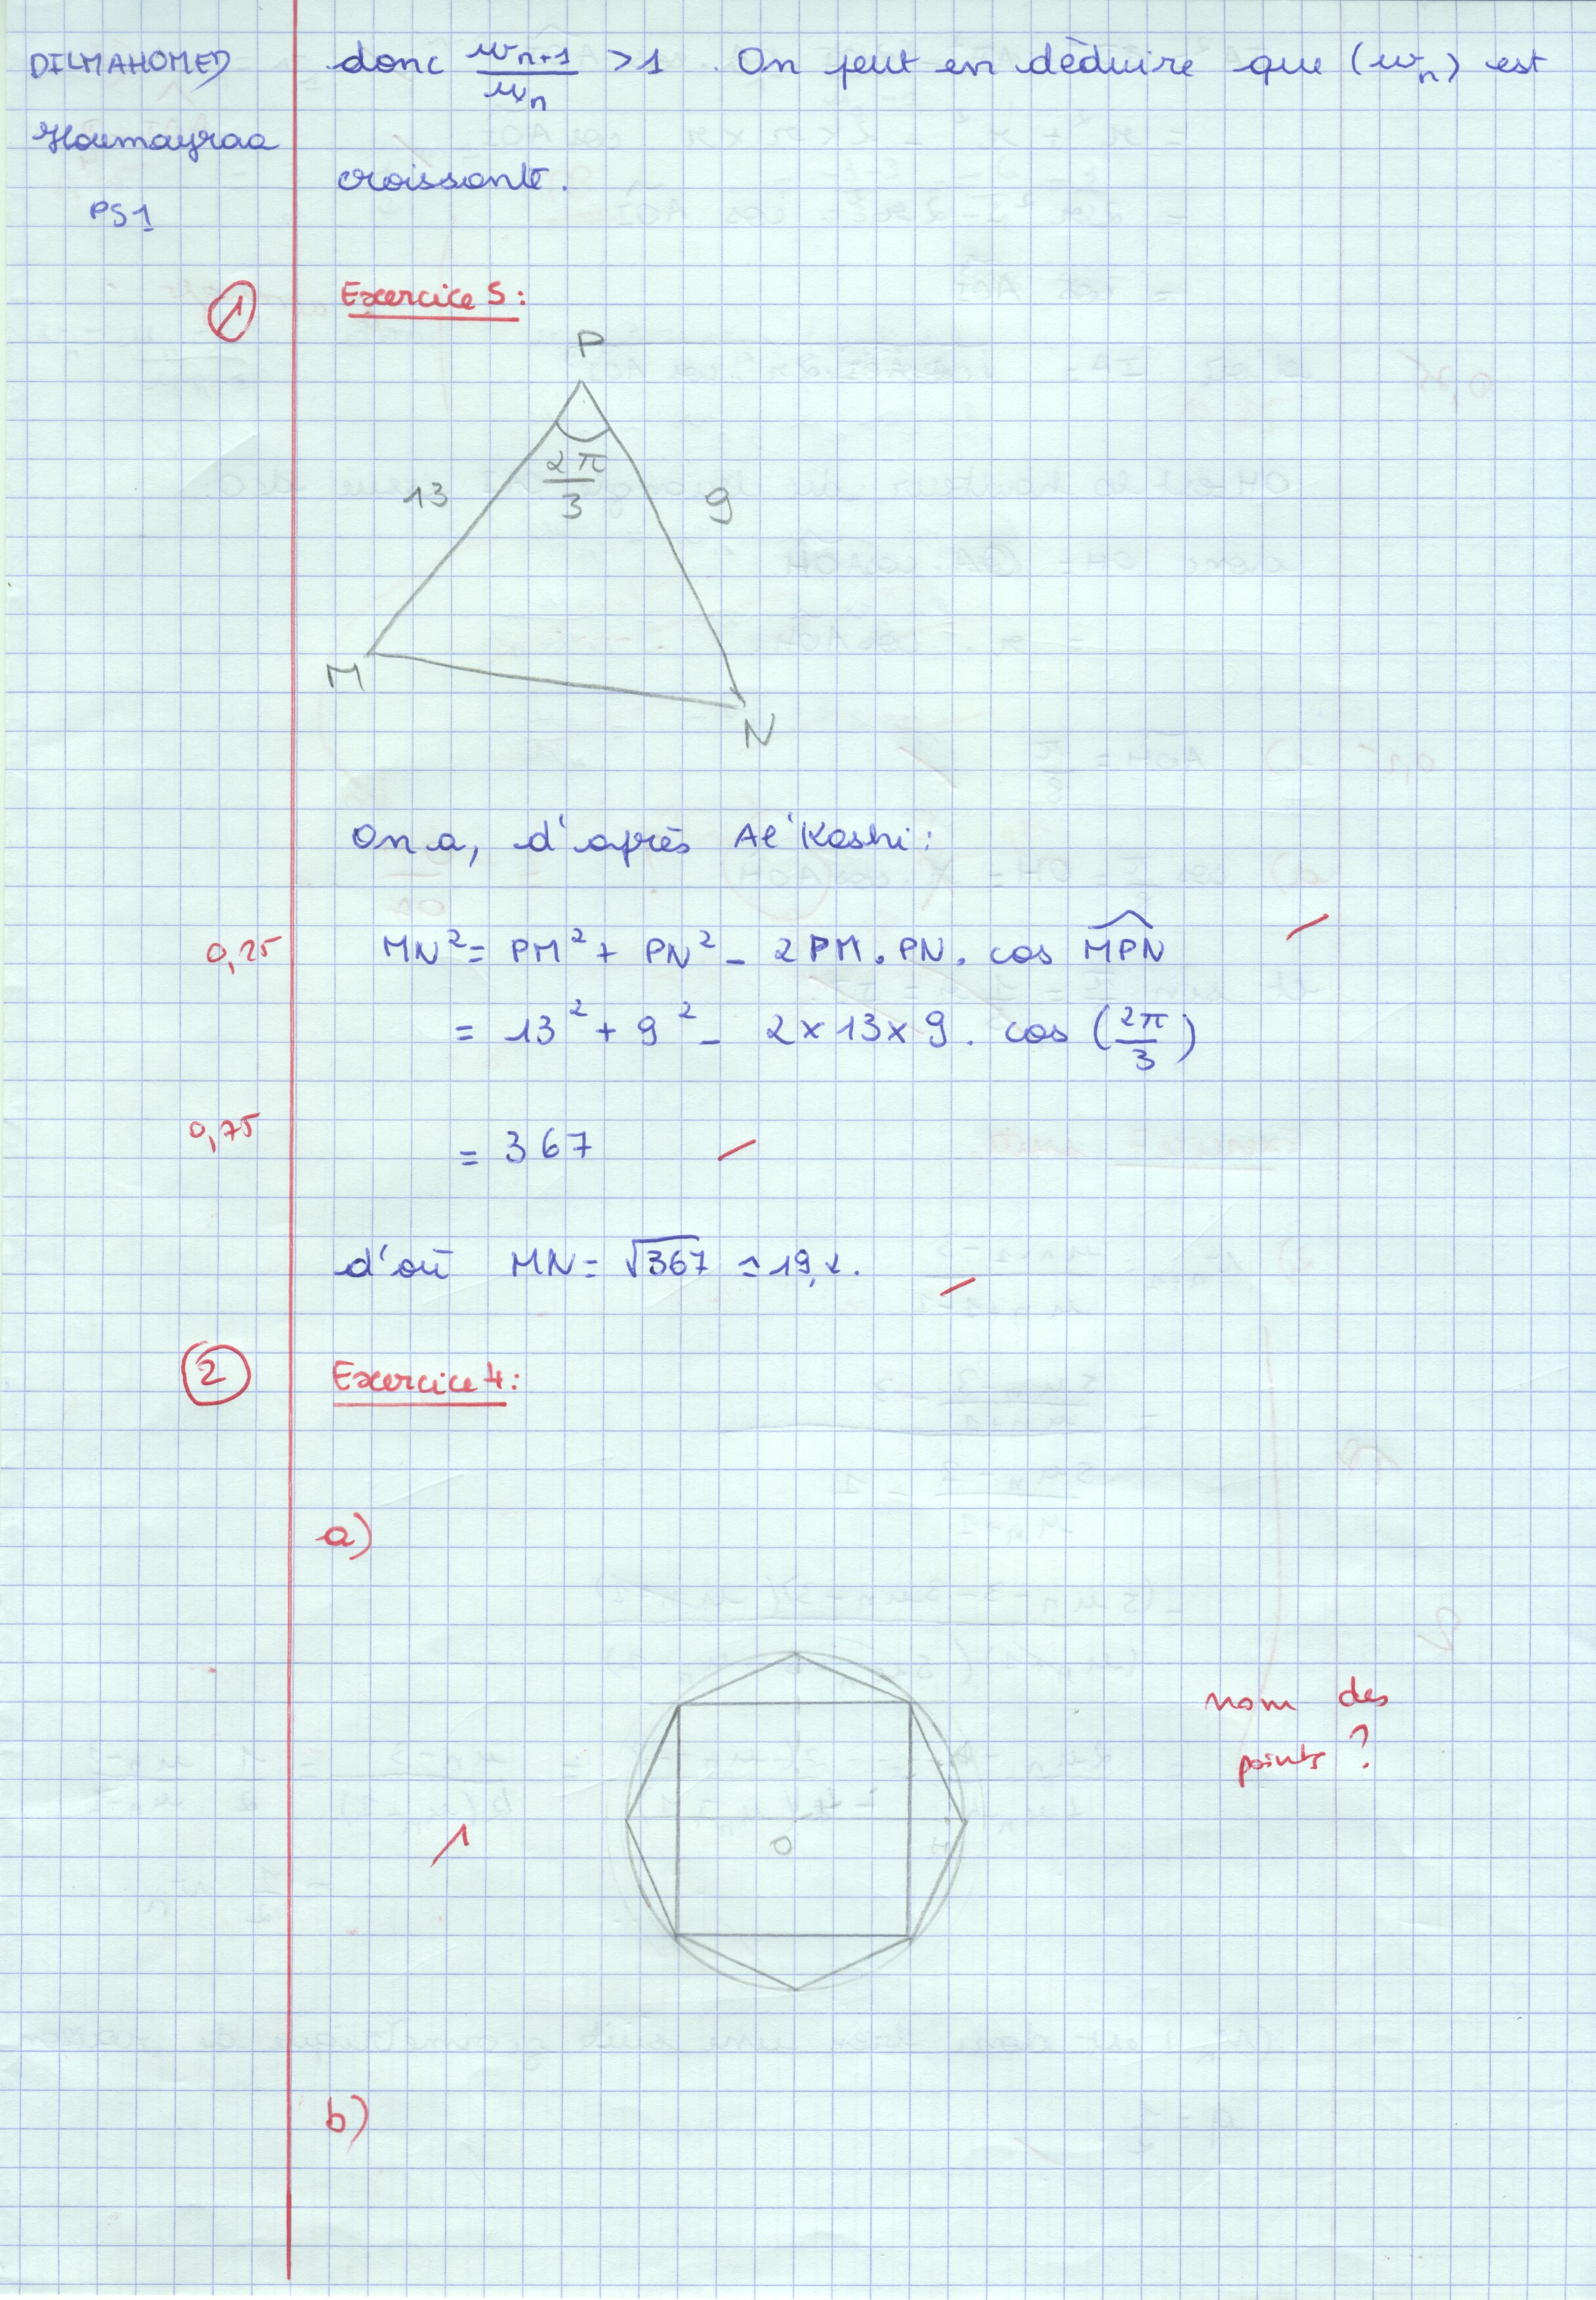 DILMAHOMED
Houmayraa
PS1
donc w_{n+1}/w_n > 1. On peut en déduire que (w_n) est
croissante.
1
Exercice 5:
P
13
2π/3
9
M
N
On a, d'après Al'Kashi:
0,25
MN² = PM² + PN² - 2 PM . PN . cos MPN
= 13² + 9² - 2 x 13 x 9 . cos (2π/3)
0,75
= 367
d'où MN = √367 ≃ 19,2.
2
Exercice 4:
a)
nom des
points ?
1
O
b)